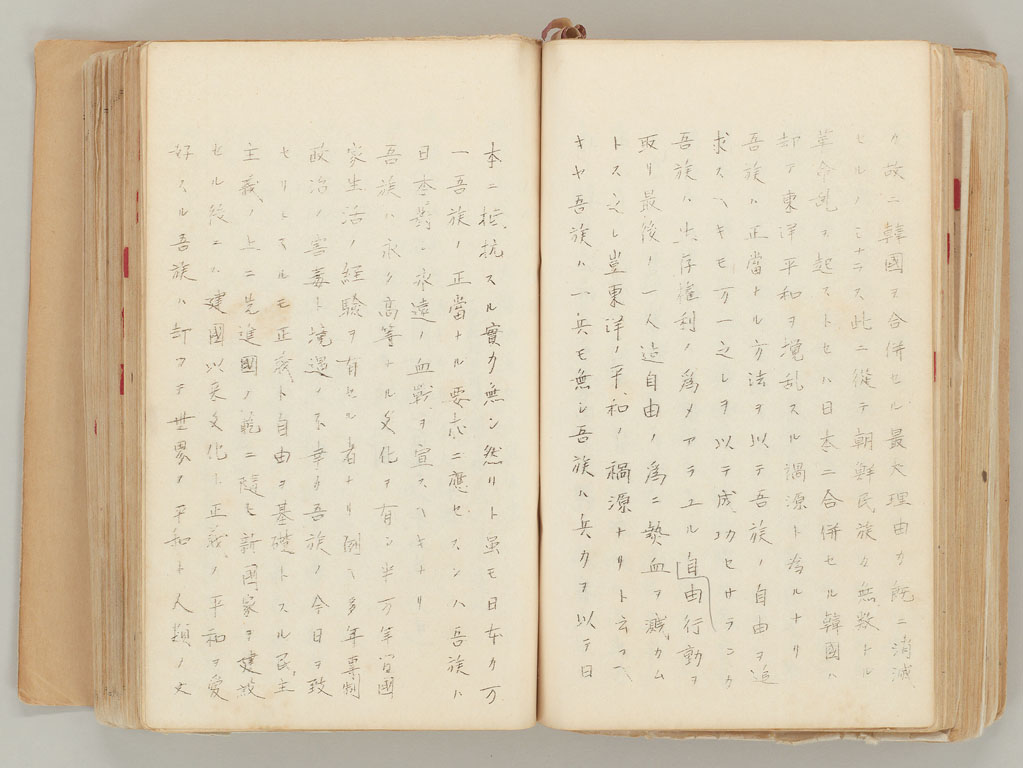 ク故ニ韓國ヲ合併セル最大理由カ既ニ消滅
セルノミナラス此ニ從テ朝鮮民族カ無数ナル
革命乱ヲ起ストセハ日本ニ合併セル韓國ハ
却テ東洋平和ヲ攪乱スル禍源ト為ルナリ
吾族ハ正當ナル方法ヲ以テ吾族ノ自由ヲ追
求スヘキモ万一之レヲ以テ成功セサランカ
吾族ハ生存権利ノ為メアラユル自由行動ヲ
取リ最後ノ一人迄自由ノ為ニ熱血ヲ濺カム
トス之レ豈東洋ノ平和ノ禍源ナリト云フヘ
キヤ吾族ハ一兵モ無シ吾族ハ兵力ヲ以テ日
本ニ抵抗スル實力無シ然リト虽モ日本カ万
一吾族ノ正當ナル要志ニ應セスンハ吾族ハ
日本對シ永遠ノ血戰ヲ宣スヘキナリ
吾族ハ永ク高等ナル文化ヲ有シ半万年間國
家生活ノ經驗ヲ有セル者ナリ例ヘ多年專制
政治ノ害毒ト境遇ノ不幸カ吾族ノ今日ヲ致
セリトスルモ正義ト自由ヲ基礎トスル民主
主義ノ上ニ先進國ノ範ニ隨ヒ新國家ヲ建設
セル後ニハ建國以来文化ト正義ノ平和ヲ愛
好スル吾族ハ却ツテ世界ノ平和ト人類ノ文